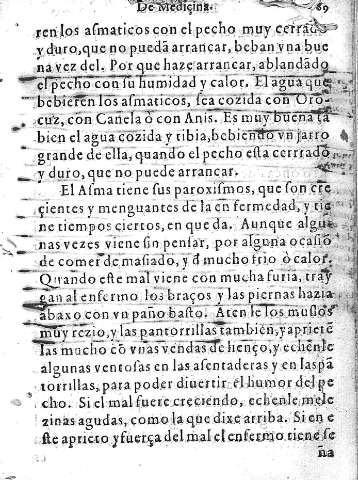 De Medicina. 69
ren los asmaticos con el pecho muy cerrado
y duro, que no puedã arrancar, beban vna bue
na vez del. Por que haze arrancar, ablandãdo
el pecho con su humidad y calor. El agua que
bebieren los asmaticos, sea cozida con Oro-
cuz, con Canela ò con Anis. Es muy buena tã
bien el agua cozida y tibia, bebiendo vn jarro
grande de ella, quando el pecho esta cerrrado
y duro, que no puede arrancar.
El Asma tiene sus paroxismos, que son cre
çientes y menguantes de la en fermedad, y tie
ne tiempos ciertos, en que da. Aunque algu
nas vezes viene sin pensar, por alguna ocasiõ
de comer demasiado, y đ mucho frio ò calor.
Quando este mal viene con mucha furia, tray
gan al enfermo los braços y las piernas hazia
abaxo con vn paño basto. Aten le los muslos
muy rezio, y las pantorrillas tambien, y apriete
las mucho cõ vnas vendas de lienço, y echenle
algunas ventosas en las asentaderas y en las pã
torrillas, para poder diuertir el humor del pe
cho. Si el mal fuere creciendo, echenle mele
zinas agudas, como la que dixe arriba. Si en e
ste aprieto y fuerça del mal el enfermo tiene se
ña